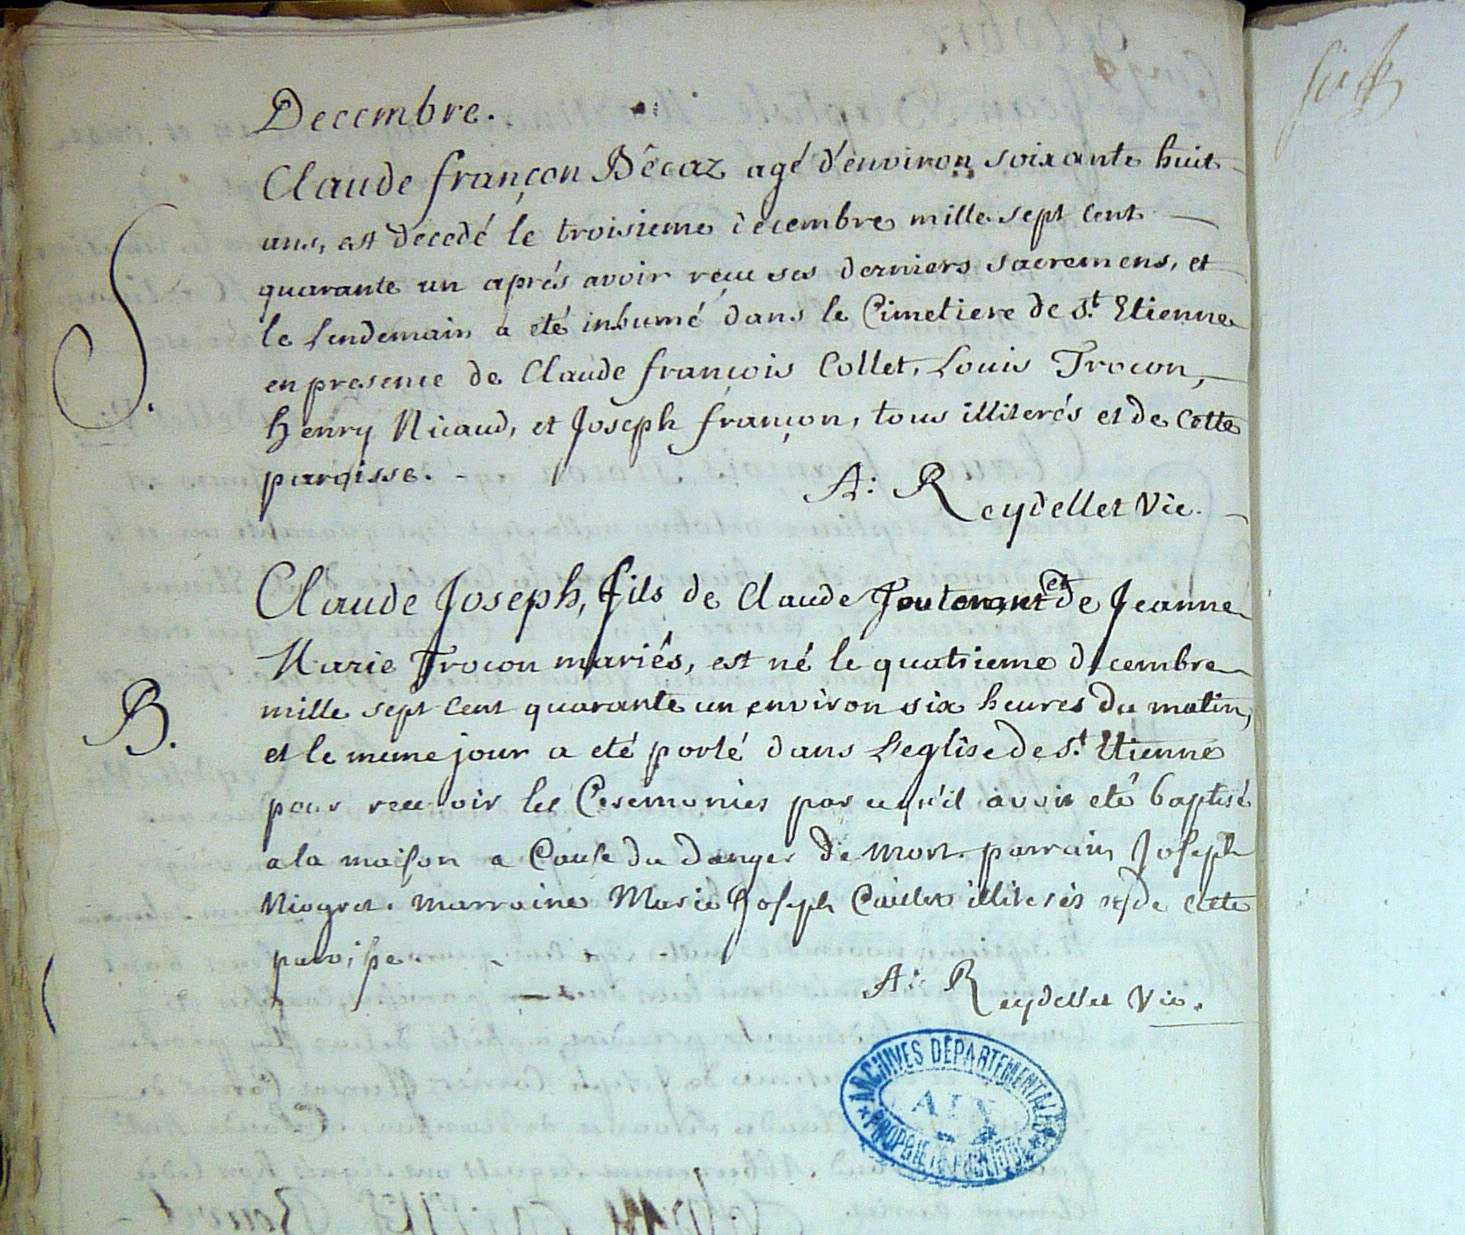 Decembre.
Claude françon Bécaz agé d'environ soixante huit
ans, est decedé le troisieme decembre mille sept cent
quarante un aprés avoir reçu ses derniers sacremens, et
le lendemain a été inhumé dans le Cimetiere de st. Etienne
en presence de Claude françois Collet, Louis Trocon,
henry Nicaud, et Joseph françon, tous illiterés et de cette
paroisse.
S.
A: Reydellet Vic.
Claude Joseph, fils de Claude et de Jeanne
Marie Trocon mariés, est né le quatrieme decembre
mille sept cent quarante un environ six heures du matin,
B.
et le meme jour a eté porté dans L'eglise de st. Etienne
pour recevoir les Ceremonies par ce qu'il avoit eté baptisé
a la maison a Cause du danger de mort. parrain Joseph
Niogret. marraine Marie Joseph Caillet illiterés et de cette
paroisse.
A: Reydellet Vic.
ARCHIVES DÉPARTEMENTALES
AIN
PROPRIÉTÉ PUBLIQUE